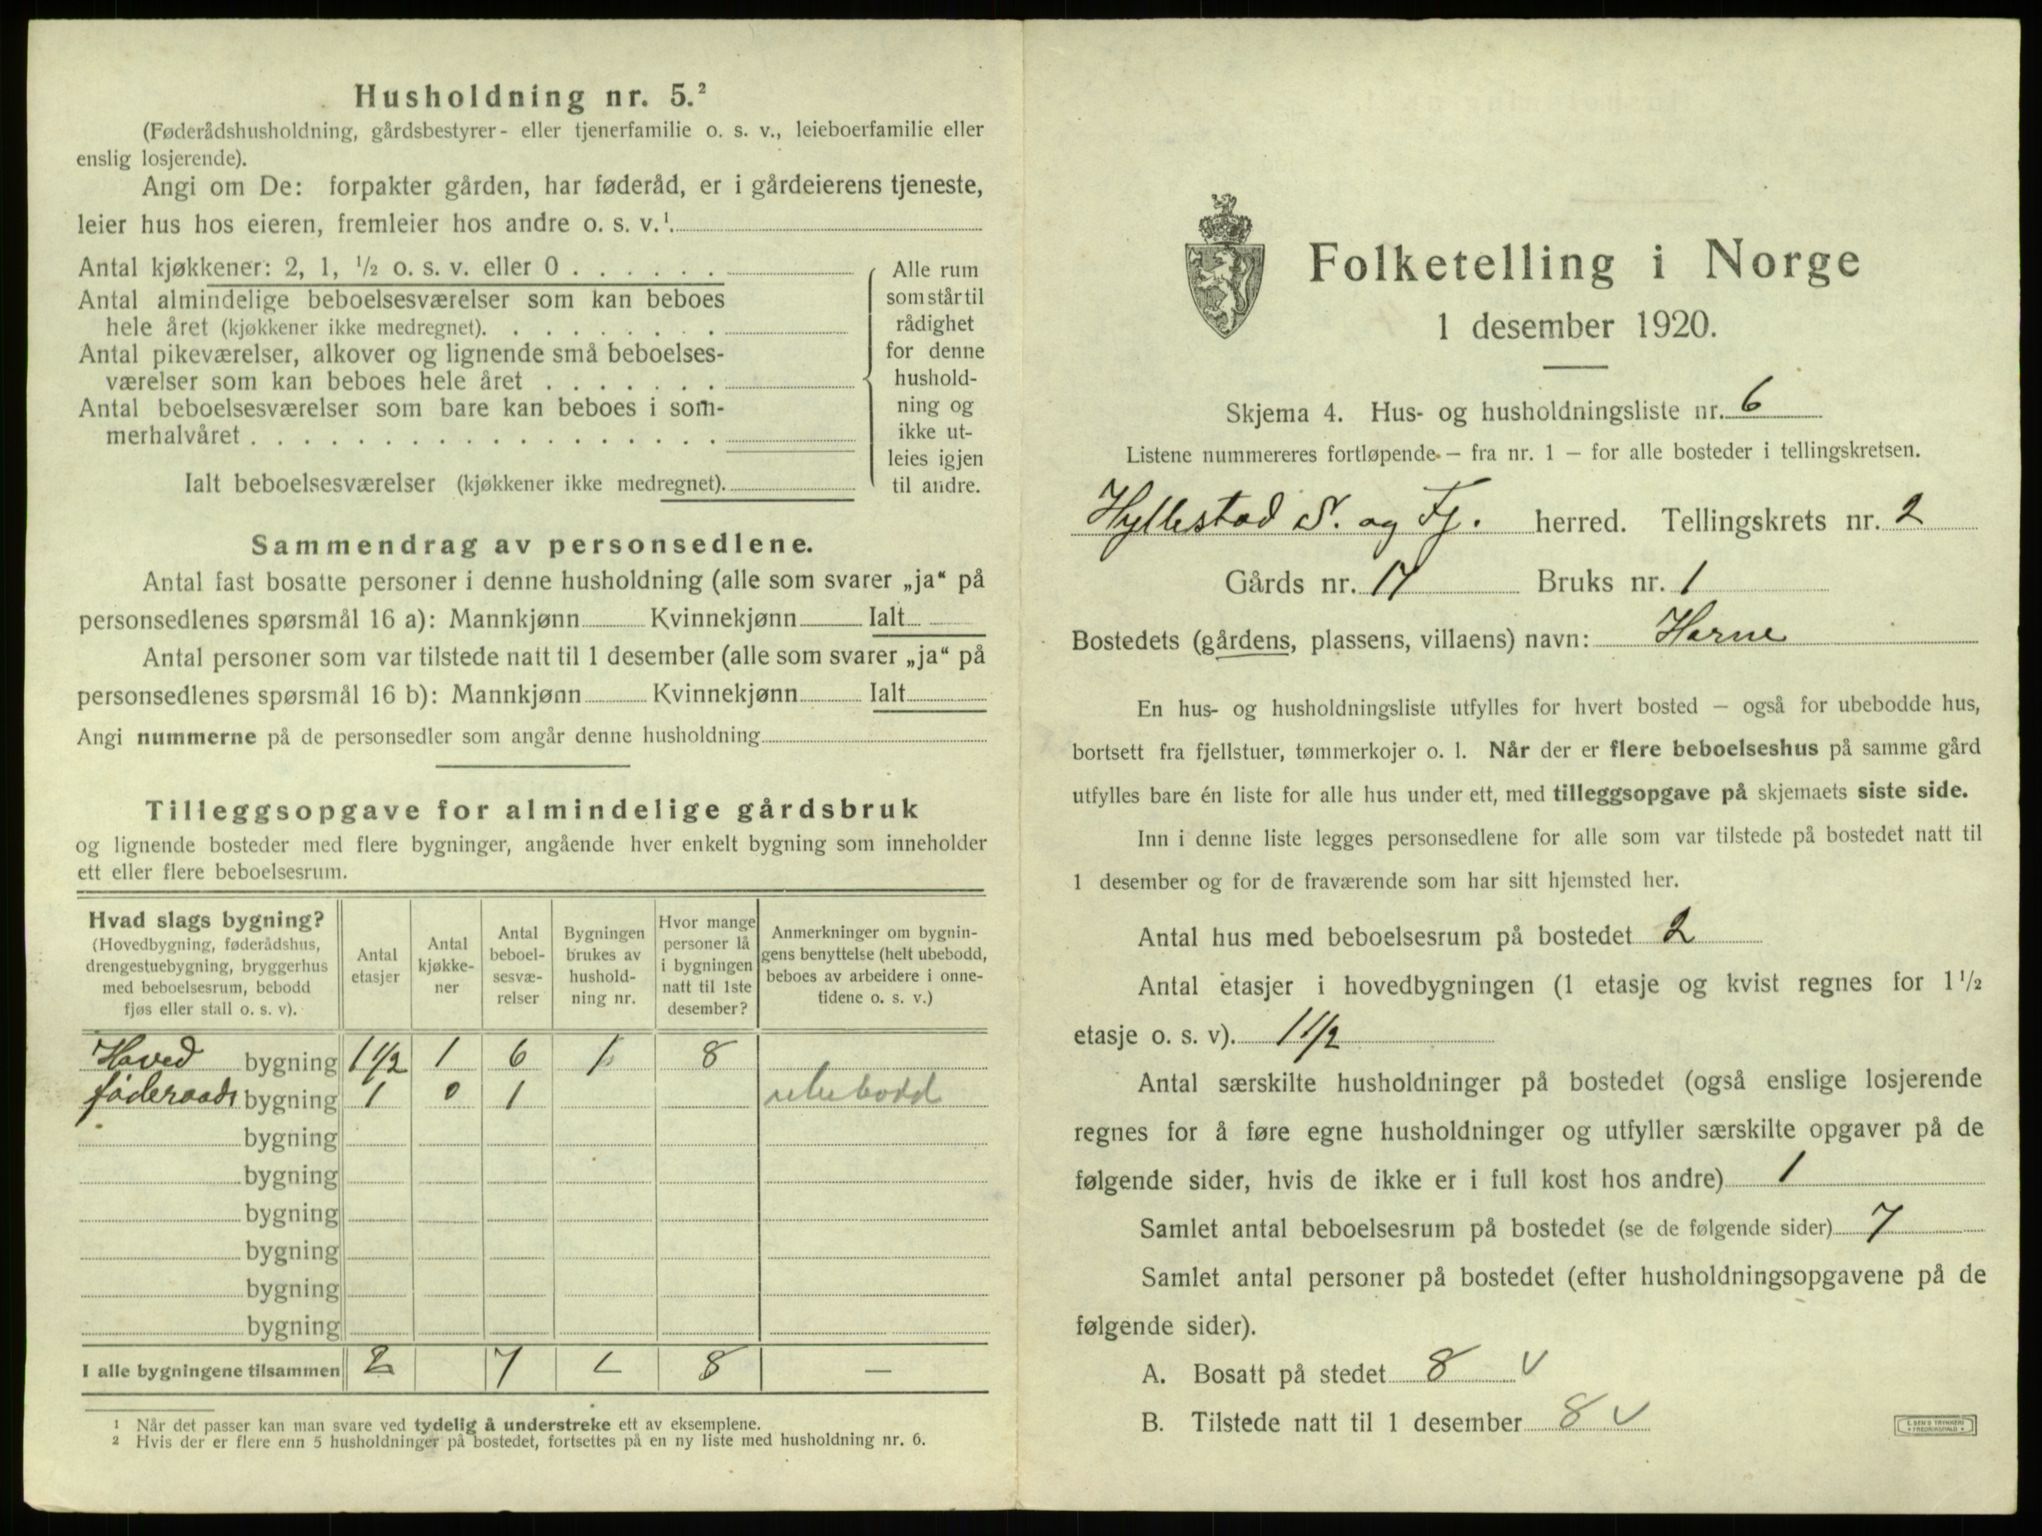 Husholdning nr. 5.²
(Føderådshusholdning, gårdsbestyrer- eller tjenerfamilie o. s. v., leieboerfamilie eller
enslig losjerende).
Angi om De: forpakter gården, har føderåd, er i gårdeierens tjeneste,
leier hus hos eieren, fremleier hos andre o. s. v.¹.
Antal kjøkkener: 2, 1, ½ o. s. v. eller 0 . . . . . .
Antal almindelige beboelsesværelser som kan beboes
hele året (kjøkkener ikke medregnet). . . . . . . . .
Antal pikeværelser, alkover og lignende små beboelses-
værelser som kan beboes hele året . . . . . . .
Antal beboelsesværelser som bare kan beboes i som-
merhalvåret . . . . . . . . . . . . . . . . . .
Ialt beboelsesværelser (kjøkkener ikke medregnet).
Alle rum
som står til
rådighet
for denne
hushold-
ning og
ikke ut-
leies igjen
til andre.
Sammendrag av personsedlene.
Antal fast bosatte personer i denne husholdning (alle som svarer „ja“ på
personsedlenes spørsmål 16 a): Mannkjønn Kvinnekjønn Ialt
Antal personer som var tilstede natt til 1 desember (alle som svarer „ja“ på
personsedlenes spørsmål 16 b): Mannkjønn Kvinnekjønn Ialt
Angi nummerne på de personsedler som angår denne husholdning
Tilleggsopgave for almindelige gårdsbruk
og lignende bosteder med flere bygninger, angående hver enkelt bygning som inneholder
ett eller flere beboelsesrum.
Hvad slags bygning?
(Hovedbygning, føderådshus,
drengestuebygning, bryggerhus
med beboelsesrum, bebodd
fjøs eller stall o. s. v).
Antal
etasjer
Antal
kjøkke-
ner
Antal
beboel-
sesvæ-
relser
Bygningen
brukes av
hushold-
ning nr.
Hvor mange
personer lå
i bygningen
natt til 1ste
desember?
Anmerkninger om bygnin-
gens benyttelse (helt ubebodd,
beboes av arbeidere i onne-
tidene o. s. v.)
Hoved bygning 1½ 1 6 1 8
føderaads bygning 1 0 1 ubebodd
bygning
bygning
bygning
bygning
bygning
bygning
I alle bygningene tilsammen 2 7 8 —
¹ Når det passer kan man svare ved tydelig å understreke ett av eksemplene.
² Hvis der er flere enn 5 husholdninger på bostedet, fortsettes på en ny liste med husholdning nr. 6.
Folketelling i Norge
1 desember 1920.
Skjema 4. Hus- og husholdningsliste nr. 6
Listene nummereres fortløpende — fra nr. 1 — for alle bosteder i tellingskretsen.
Hyllestad S. og Fj. herred. Tellingskrets nr. 2
Gårds nr. 17 Bruks nr. 1
Bostedets (gårdens, plassens, villaens) navn: Harne
En hus- og husholdningsliste utfylles for hvert bosted — også for ubebodde hus,
bortsett fra fjellstuer, tømmerkojer o. l. Når der er flere beboelseshus på samme gård
utfylles bare én liste for alle hus under ett, med tilleggsopgave på skjemaets siste side.
Inn i denne liste legges personsedlene for alle som var tilstede på bostedet natt til
1 desember og for de fraværende som har sitt hjemsted her.
Antal hus med beboelsesrum på bostedet 2
Antal etasjer i hovedbygningen (1 etasje og kvist regnes for 1½
etasje o. s. v). 1½
Antal særskilte husholdninger på bostedet (også enslige losjerende
regnes for å føre egne husholdninger og utfyller særskilte opgaver på de
følgende sider, hvis de ikke er i full kost hos andre) 1
Samlet antal beboelsesrum på bostedet (se de følgende sider) 7
Samlet antal personer på bostedet (efter husholdningsopgavene på de
følgende sider).
A. Bosatt på stedet 8 v
B. Tilstede natt til 1 desember 8 v